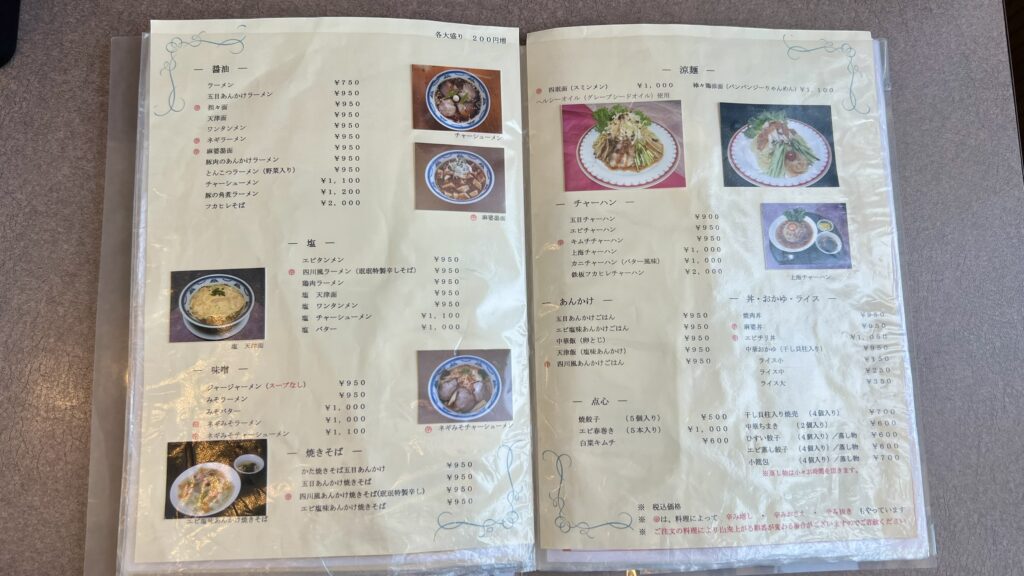 各大盛り 200円増
― 醤油 ―
ラーメン ￥750
五目あんかけラーメン ￥950
担々面 ￥950
天津面 ￥950
ワンタンメン ￥950
ネギラーメン ￥950
麻婆湯面 ￥950
豚肉のあんかけラーメン ￥950
とんこつラーメン（野菜入り） ￥950
チャーシューメン ￥1,100
豚の角煮ラーメン ￥1,200
フカヒレそば ￥2,000
チャーシューメン
麻婆湯面
― 塩 ―
エビタンメン ￥950
四川風ラーメン（珉珉特製辛しそば） ￥950
鶏肉ラーメン ￥950
塩 天津面 ￥950
塩 ワンタンメン ￥950
塩 チャーシューメン ￥1,100
塩 バター ￥1,000
塩 天津面
― 味噌 ―
ジャージャーメン（スープなし） ￥950
みそラーメン ￥950
みそバター ￥1,000
ネギみそラーメン ￥1,000
ネギみそチャーシューメン ￥1,100
ネギみそチャーシューメン
― 焼きそば ―
かた焼きそば五目あんかけ ￥950
五目あんかけ焼きそば ￥950
四川風あんかけ焼きそば(珉珉特製辛し) ￥950
エビ塩味あんかけ焼きそば ￥950
エビ塩味あんかけ焼きそば
― 涼麺 ―
四珉面（スミンメン） ￥1,000
ヘルシーオイル（グレープシードオイル）使用
棒々鶏涼面（バンバンジーりゃんめん）￥1,100
― チャーハン ―
五目チャーハン ￥900
エビチャーハン ￥950
キムチチャーハン ￥950
上海チャーハン ￥1,000
カニチャーハン（バター風味） ￥1,000
鉄板フカヒレチャーハン ￥2,000
上海チャーハン
― あんかけ ―
五目あんかけごはん ￥950
エビ塩味あんかけごはん ￥950
中華飯（卵とじ） ￥950
天津飯（塩味あんかけ） ￥950
四川風あんかけごはん ￥950
― 丼・おかゆ・ライス ―
焼肉丼 ￥950
麻婆丼 ￥950
エビチリ丼 ￥1,050
中華おかゆ（干し貝柱入り） ￥950
ライス小 ￥150
ライス中 ￥250
ライス大 ￥350
― 点心 ―
焼餃子 （5個入り） ￥500
エビ春巻き （5本入り） ￥1,000
白菜キムチ ￥600
干し貝柱入り焼売 （4個入り） ￥700
中華ちまき （2個入り） ￥600
ひすい餃子 （4個入り）／蒸し物 ￥600
エビ蒸し餃子 （4個入り）／蒸し物 ￥600
小籠包 （4個入り）／蒸し物 ￥700
※蒸し物は少々お時間を頂きます。
※ 税込価格
※ は、料理によって 辛み増し ・ 辛みおさえ ・ 辛み抜き もやっています
※ ご注文の料理により出来上がる順番が変わる場合がございますのでご容赦ください